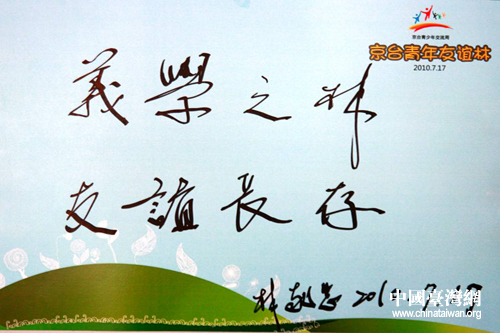 京台青少年交流周
京台青年友谊林
2010.7.17
義學之林
友誼長存
林
中國臺灣網
www.chinataiwan.org